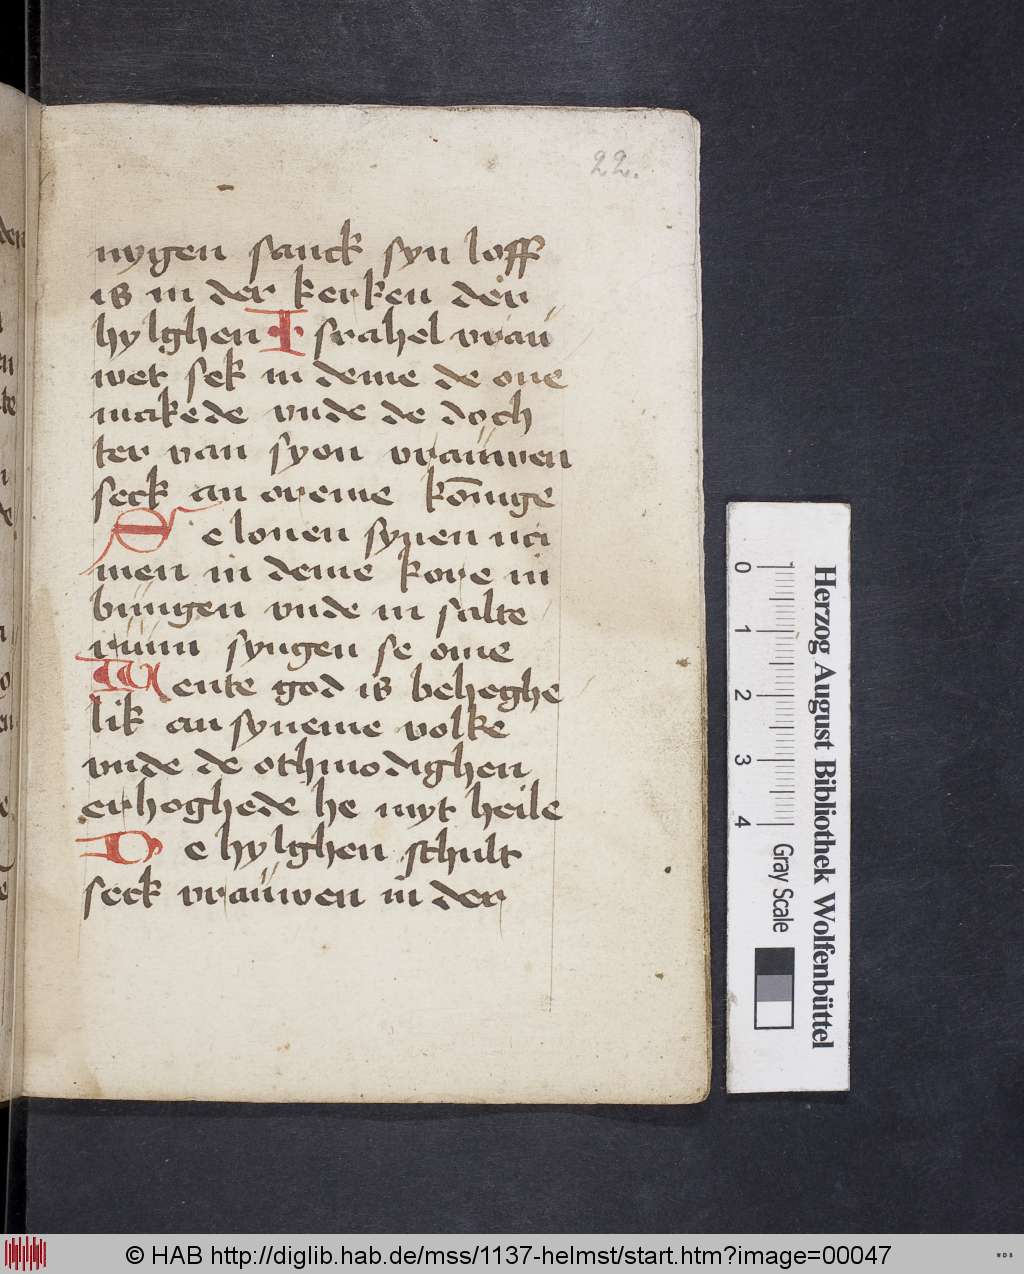 22.
nygen sanck syn loff
is in der kerken der
hylghen Israhel vrau
wet sek in deme de one
makede vnde de doch
ter van syon vrauwen
seck an oreme kōnige
Se louen synen na
men in deme kore in
bungen vnde in salte
rium syngen se ome
Wente god is beheghe
lik an syneme volke
vnde de othmodighen
erhoghede he myt heile
De hylghen schult
seck vrauwen in der
Herzog August Bibliothek Wolfenbüttel
0 1 2 3 4 Gray Scale
© HAB http://diglib.hab.de/mss/1137-helmst/start.htm?image=00047